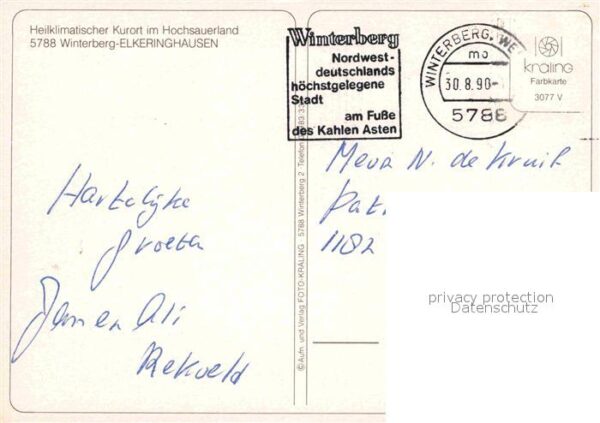 Heilklimatischer Kurort im Hochsauerland
5788 Winterberg-ELKERINGHAUSEN
Hartelijke
groeten
Jan en Ali
Rekveld
©Aufn. und Verlag FOTO-KRALING 5788 Winterberg 2 Telefon
Winterberg
Nordwest-
deutschlands
höchstgelegene
Stadt
am Fuße
des Kahlen Asten
WINTERBERG, WE
mo
30.8.90-
5788
kraling
Farbkarte
3077 V
Mevr N. de Kruif
Pat
1182
privacy protection
Datenschutz